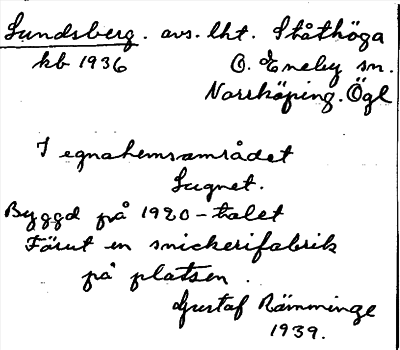 Sundsberg. avs. lht. Ståthöga
kb 1936 Ö. Eneby sn.
Norrköping. Ögl
I egnahemsområdet
Lugnet.
Byggd på 1920-talet
Förut en snickerifabrik
på platsen.
Gustaf Rämminge
1939.